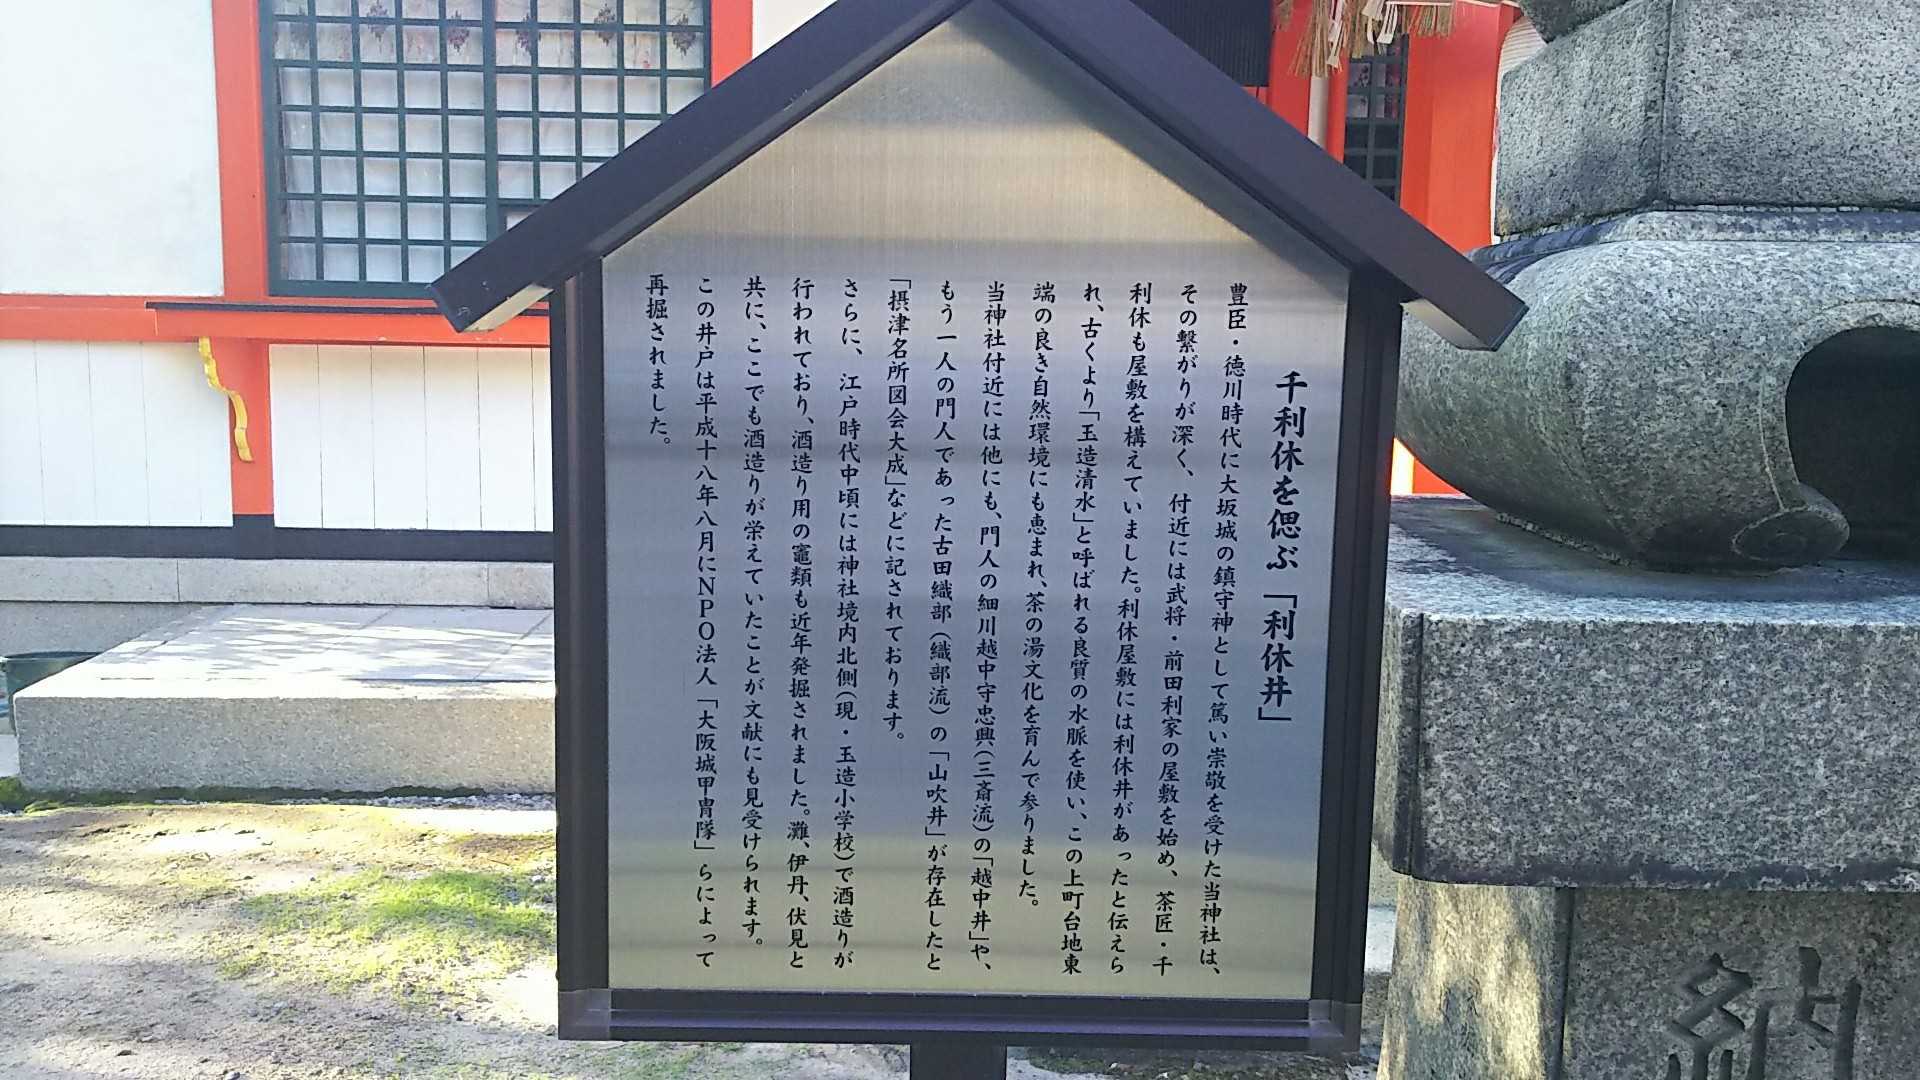 千利休を偲ぶ「利休井」
豊臣・徳川時代に大坂城の鎮守神として篤い崇敬を受けた当神社は、
その繋がりが深く、付近には武将・前田利家の屋敷を始め、茶匠・千
利休も屋敷を構えていました。利休屋敷には利休井があったと伝えら
れ、古くより「玉造清水」と呼ばれる良質の水脈を使い、この上町台地東
端の良き自然環境にも恵まれ、茶の湯文化を育んで参りました。
当神社付近には他にも、門人の細川越中守忠興(三斎流)の「越中井」や、
もう一人の門人であった古田織部(織部流)の「山吹井」が存在したと
「摂津名所図会大成」などに記されております。
さらに、江戸時代中頃には神社境内北側(現・玉造小学校)で酒造りが
行われており、酒造り用の竈類も近年発掘されました。灘、伊丹、伏見と
共に、ここでも酒造りが栄えていたことが文献にも見受けられます。
この井戸は平成十八年八月にNPO法人「大阪城甲冑隊」らによって
再掘されました。
納